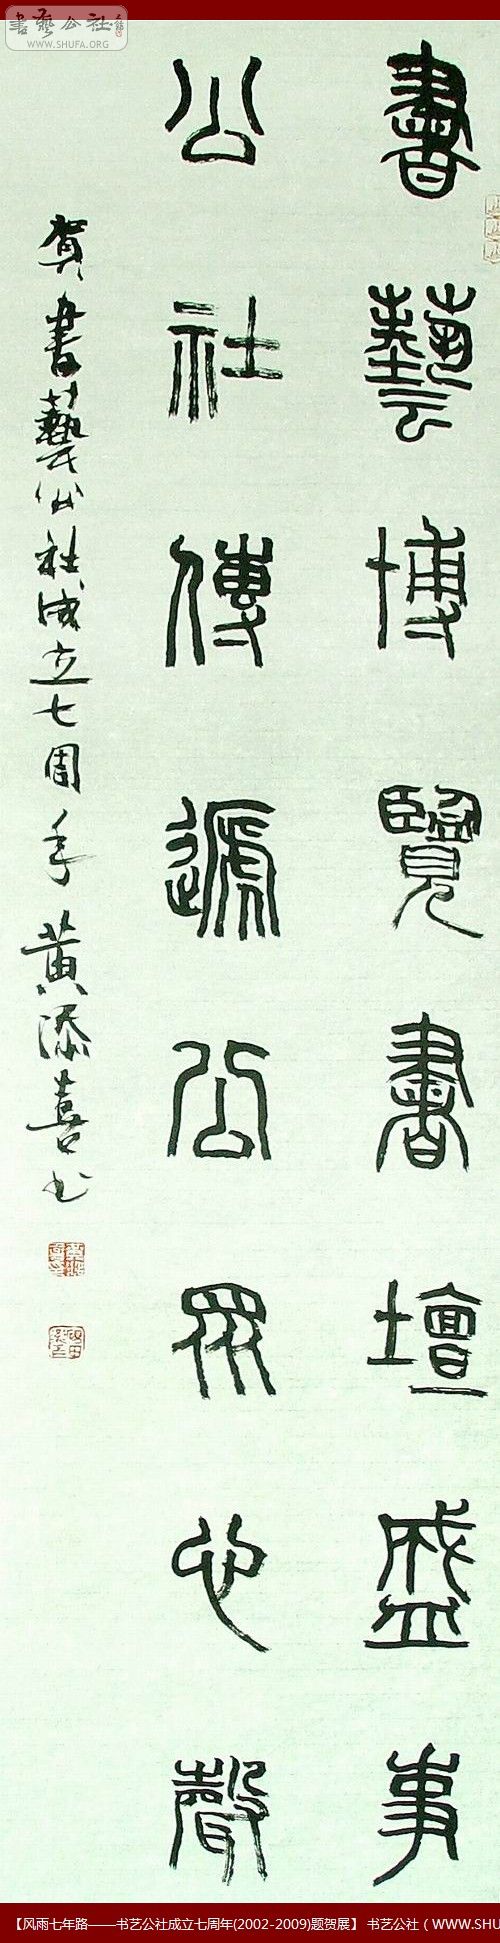 書藝公社
WWW.SHUFA.ORG
書藝博覽書壇盛事
公社傳遞公眾心聲
賀書藝公社成立七周年 黄添喜书
【风雨七年路——书艺公社成立七周年(2002-2009)题贺展】 书艺公社（WWW.SHU